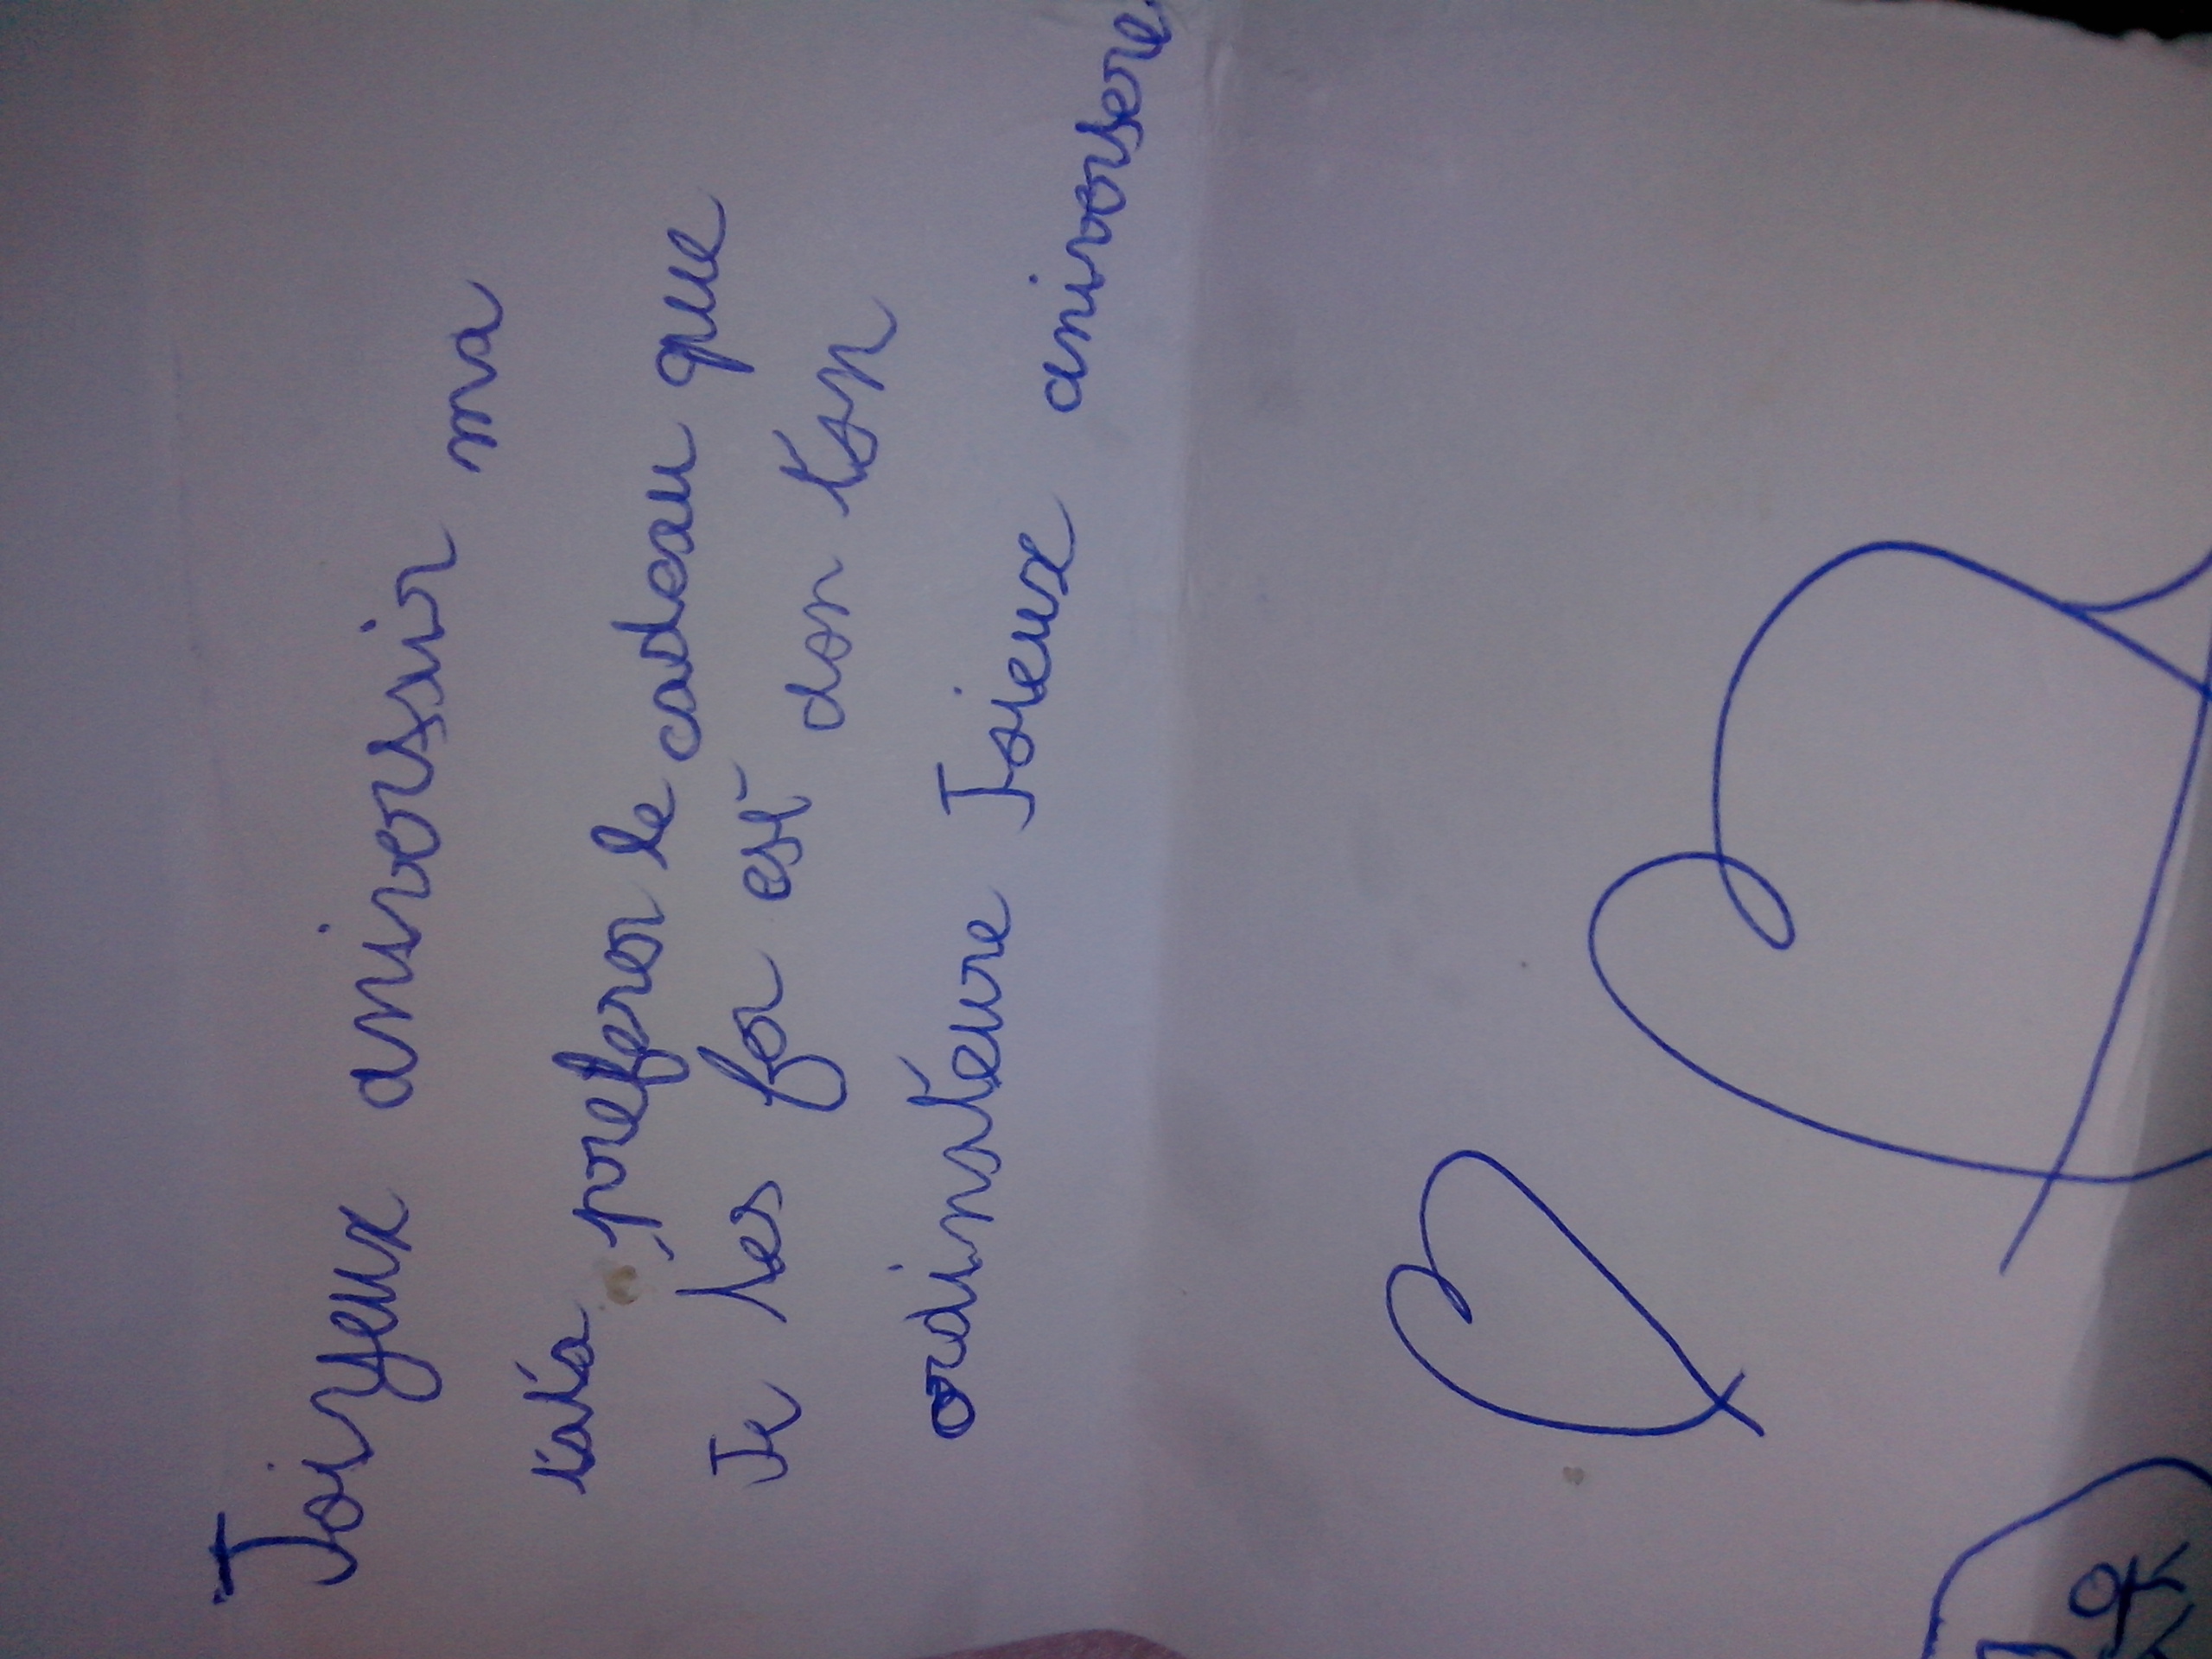 Joiyeux aniverssair ma
tata preferer le cadeau que
Je tes fer est don ton
ordinateure Joieux aniversere